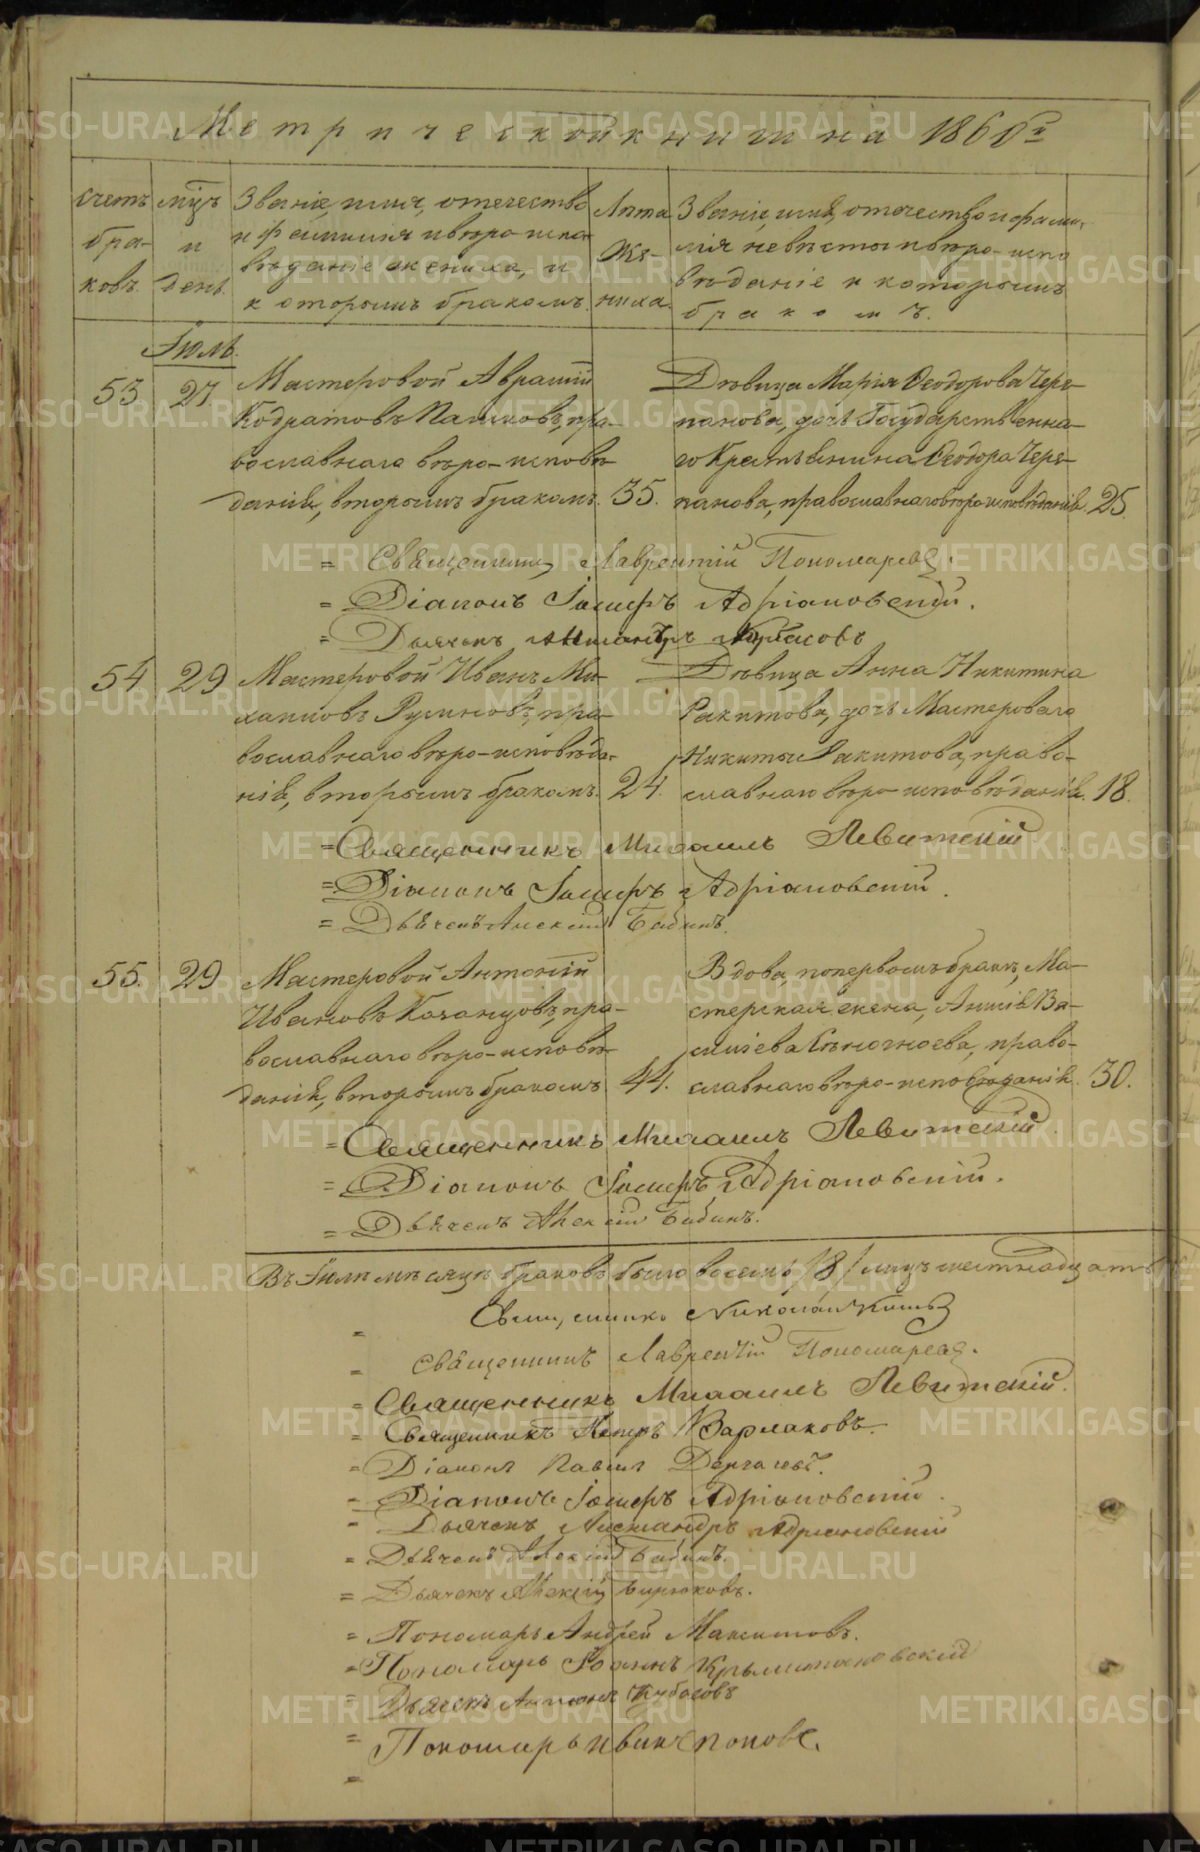 Метрической книги на 1860й
Счетъ браковъ.
Мцъ и день.
Званіе, имя, отечество
и фамилия и вѣро-испо
вѣданіе жениха, и
которымъ бракомъ.
Лѣта
же-
ниха.
Званіе, имя, отечество и фами-
лія невѣсты и вѣро-испо
вѣданіе и которымъ
бракомъ.
Іюль.
53. 27.
Мастеровой Аврамій
Кодратовъ Пашковъ, пра-
вославнаго вѣро-исповѣ
данія, вторымъ бракомъ. 35.
Дѣвица Марія Ѳеодорова Чере-
панова, дочь Государственна-
го Крестьянина Ѳеодора Чере-
панова, православнаго вѣроисповѣданія. 25.
= Священникъ Лаврентій Пономаревъ.
= Діаконъ Іосифъ Адріановскій.
= Дьячекъ
54 29
Мастеровой Иванъ Ми-
хаиловъ Русиновъ, пра-
вославнаго вѣро-исповѣда-
нія, вторымъ бракомъ. 24.
Дѣвица Анна Никитина
Ракитова, дочь Мастероваго
Никиты Ракитова, право-
славнаго вѣро-исповѣданія. 18.
= Священникъ Михаилъ Левитскій
= Діаконъ Іосифъ Адріановскій.
= Дьячекъ Алексій Бабинъ.
55. 29
Мастеровой Антоній
Ивановъ Казанцовъ, пра-
вославнаго вѣро-исповѣ
данія, вторымъ бракомъ. 44.
Вдова, по первомъ бракѣ, Ма-
стерская жена, Васи-
лиева право-
славнаго вѣро-исповѣданія. 30.
= Священникъ Михаилъ Левитскій.
= Діаконъ Іосифъ Адріановскій.
= Дьячекъ Алексій Бабинъ.
Въ Іюлѣ мѣсяцѣ браковъ было восемь /8/ лицъ шестнадцать
= Священникъ Николай
= Священникъ Лаврентій Пономаревъ.
= Священникъ Михаилъ Левитскій.
= Священникъ Петръ Варлаковъ.
= Діаконъ Павелъ Дергачевъ.
= Діаконъ Іосифъ Адріановскій.
= Дьячекъ Александръ Адріановскій
= Дьячекъ Алексій Бабинъ.
= Дьячекъ Алексій Бирюковъ.
= Пономарь Андрей Максимовъ.
= Пономарь Іоаннъ
= Дьячекъ
= Пономарь Иванъ Поповъ.
=
METRIKI.GASO-URAL.RU